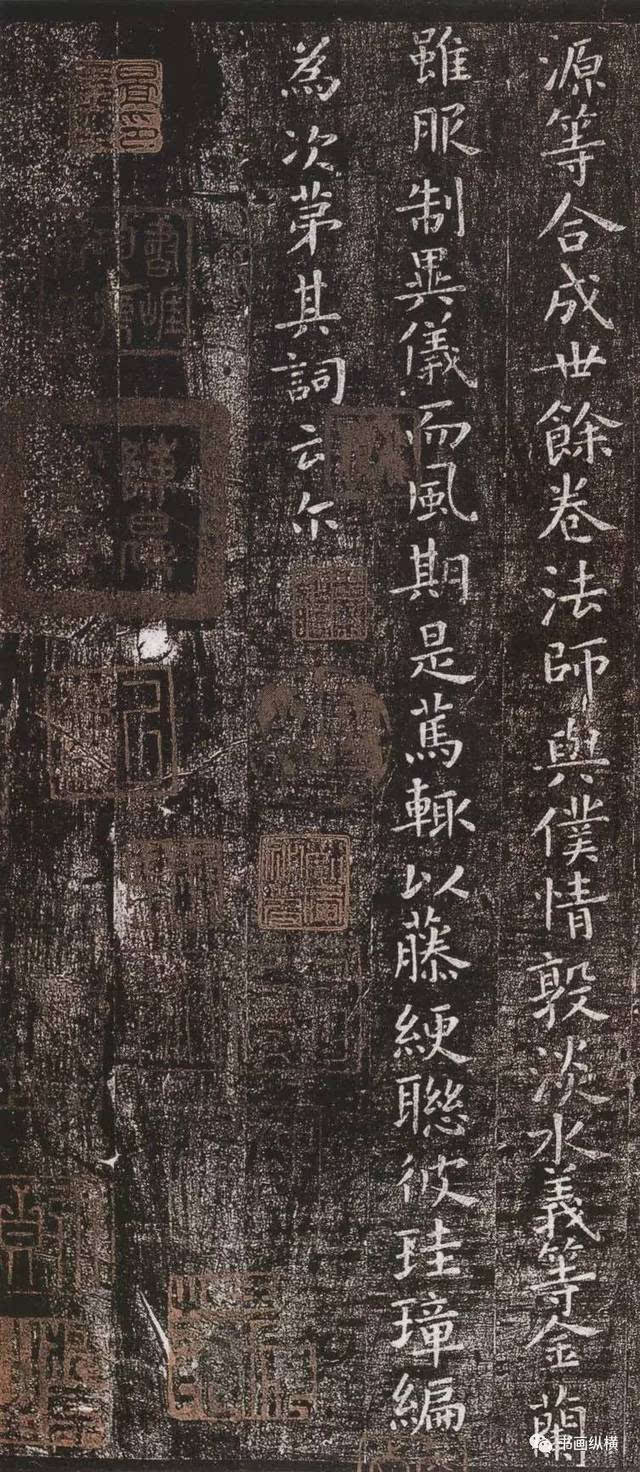 源等合成世餘卷法師與僕情敦淡水義等金蘭
雖服制異儀而風期是篤輒以藤綆聯彼珪璋編
為次第其詞云尓
书画纵横